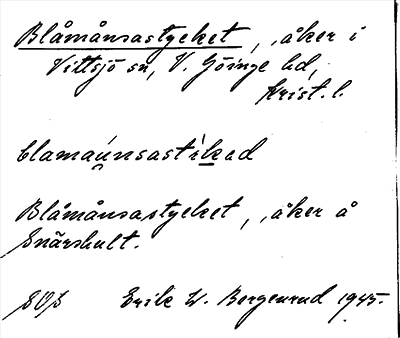 Blåmånsastycket, åker i
Vittsjö sn, V. Göinge hd,
Krist. l.
blamaúnsastìkad
Blåmånsastycket, åker å
Snärshult.
Erik W. Bergenrud 1945.